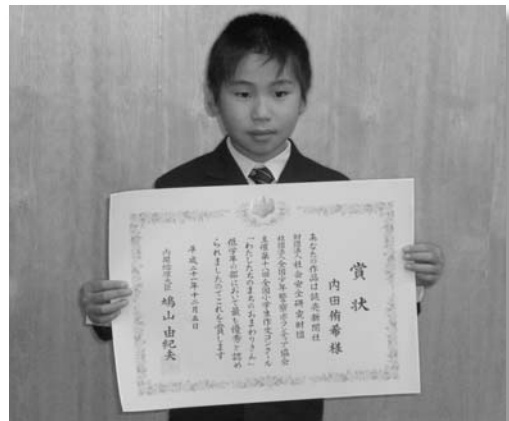 賞状
内田侑希様
あなたの作品は読売新聞社
財団法人社会安全研究財団
社団法人全国少年警察ボランティア協会
主催第十八回全国小学生作文コンクール
「わたしたちのまちのおまわりさん」
低学年の部において最も優秀と認め
られましたのでこれを賞します
平成二十一年十二月五日
内閣総理大臣 鳩山由紀夫